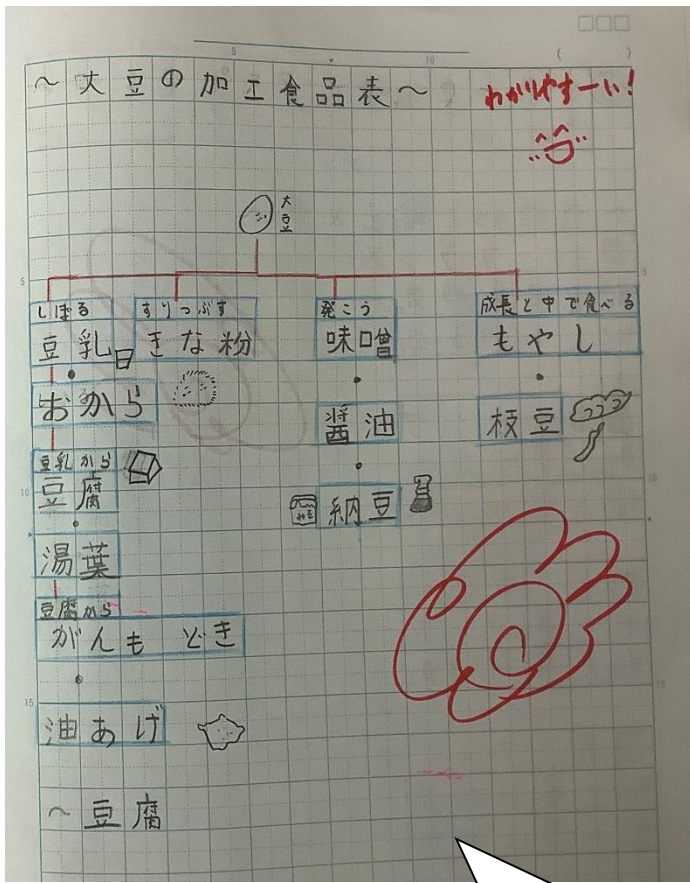 ～大豆の加工食品表～
わかりやすーい！
大豆
しぼる
豆乳
おから
豆乳から
豆腐
湯葉
豆腐から
がんもどき
油あげ
すりつぶす
きな粉
発こう
味噌
醤油
納豆
成長と中で食べる
もやし
枝豆
～豆腐